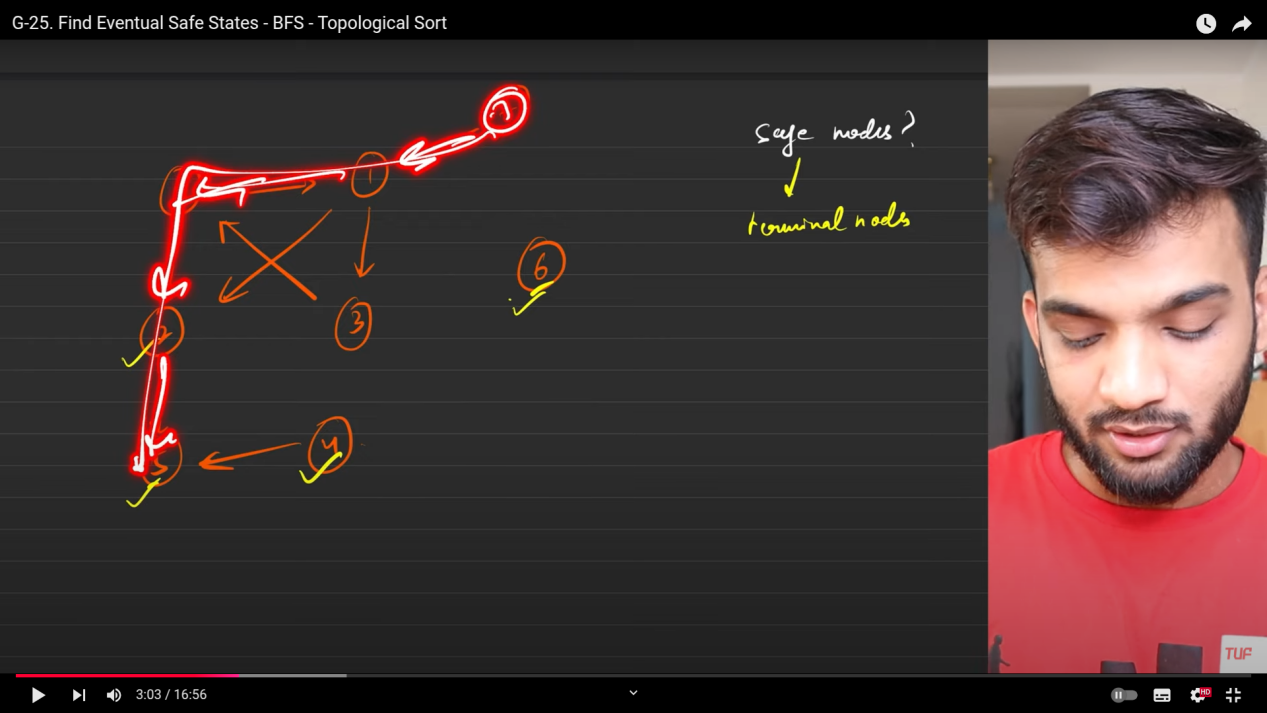 G-25. Find Eventual Safe States - BFS - Topological Sort
safe nodes?
terminal nodes
7
1
6
2
3
4
5
TUF
3:03 / 16:56
HD